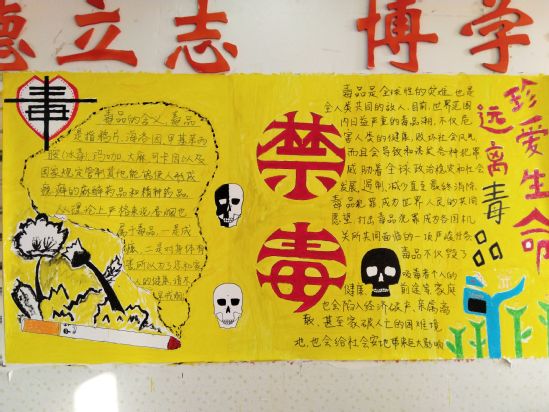 德立志 博学
毒
毒品的含义、毒品
是指鸦片、海洛因、甲基苯丙
胺(冰毒)、吗啡、大麻、可卡因以及
国家规定管制其他能够使人形成
瘾癖的麻醉药品和精神药品。
从理论上严格来说香烟也
属于毒品，一是成
瘾、二是对身体有
的健康，请不
禁毒
毒品是全球性的灾难，也是
全人类共同的敌人，目前，世界范围
内日益严重的毒品祸，不仅危
害人类的健康，败坏社会风气
而且会导和诱发各种犯罪
威胁着全球政治稳定和社会
发展，遏制、减少直至最终消除
毒品犯罪成为世界人民的共同
愿望，打击毒品犯罪成为各国机
关所共同面临的一项严峻任务
毒品不仅毁了
吸毒者个人的
健康、前途等，家庭
也会陷入经济破产、亲属离
散、甚至家破人亡的困难境
地，也会给社会安地带来巨大影响
珍爱生命
远离毒品